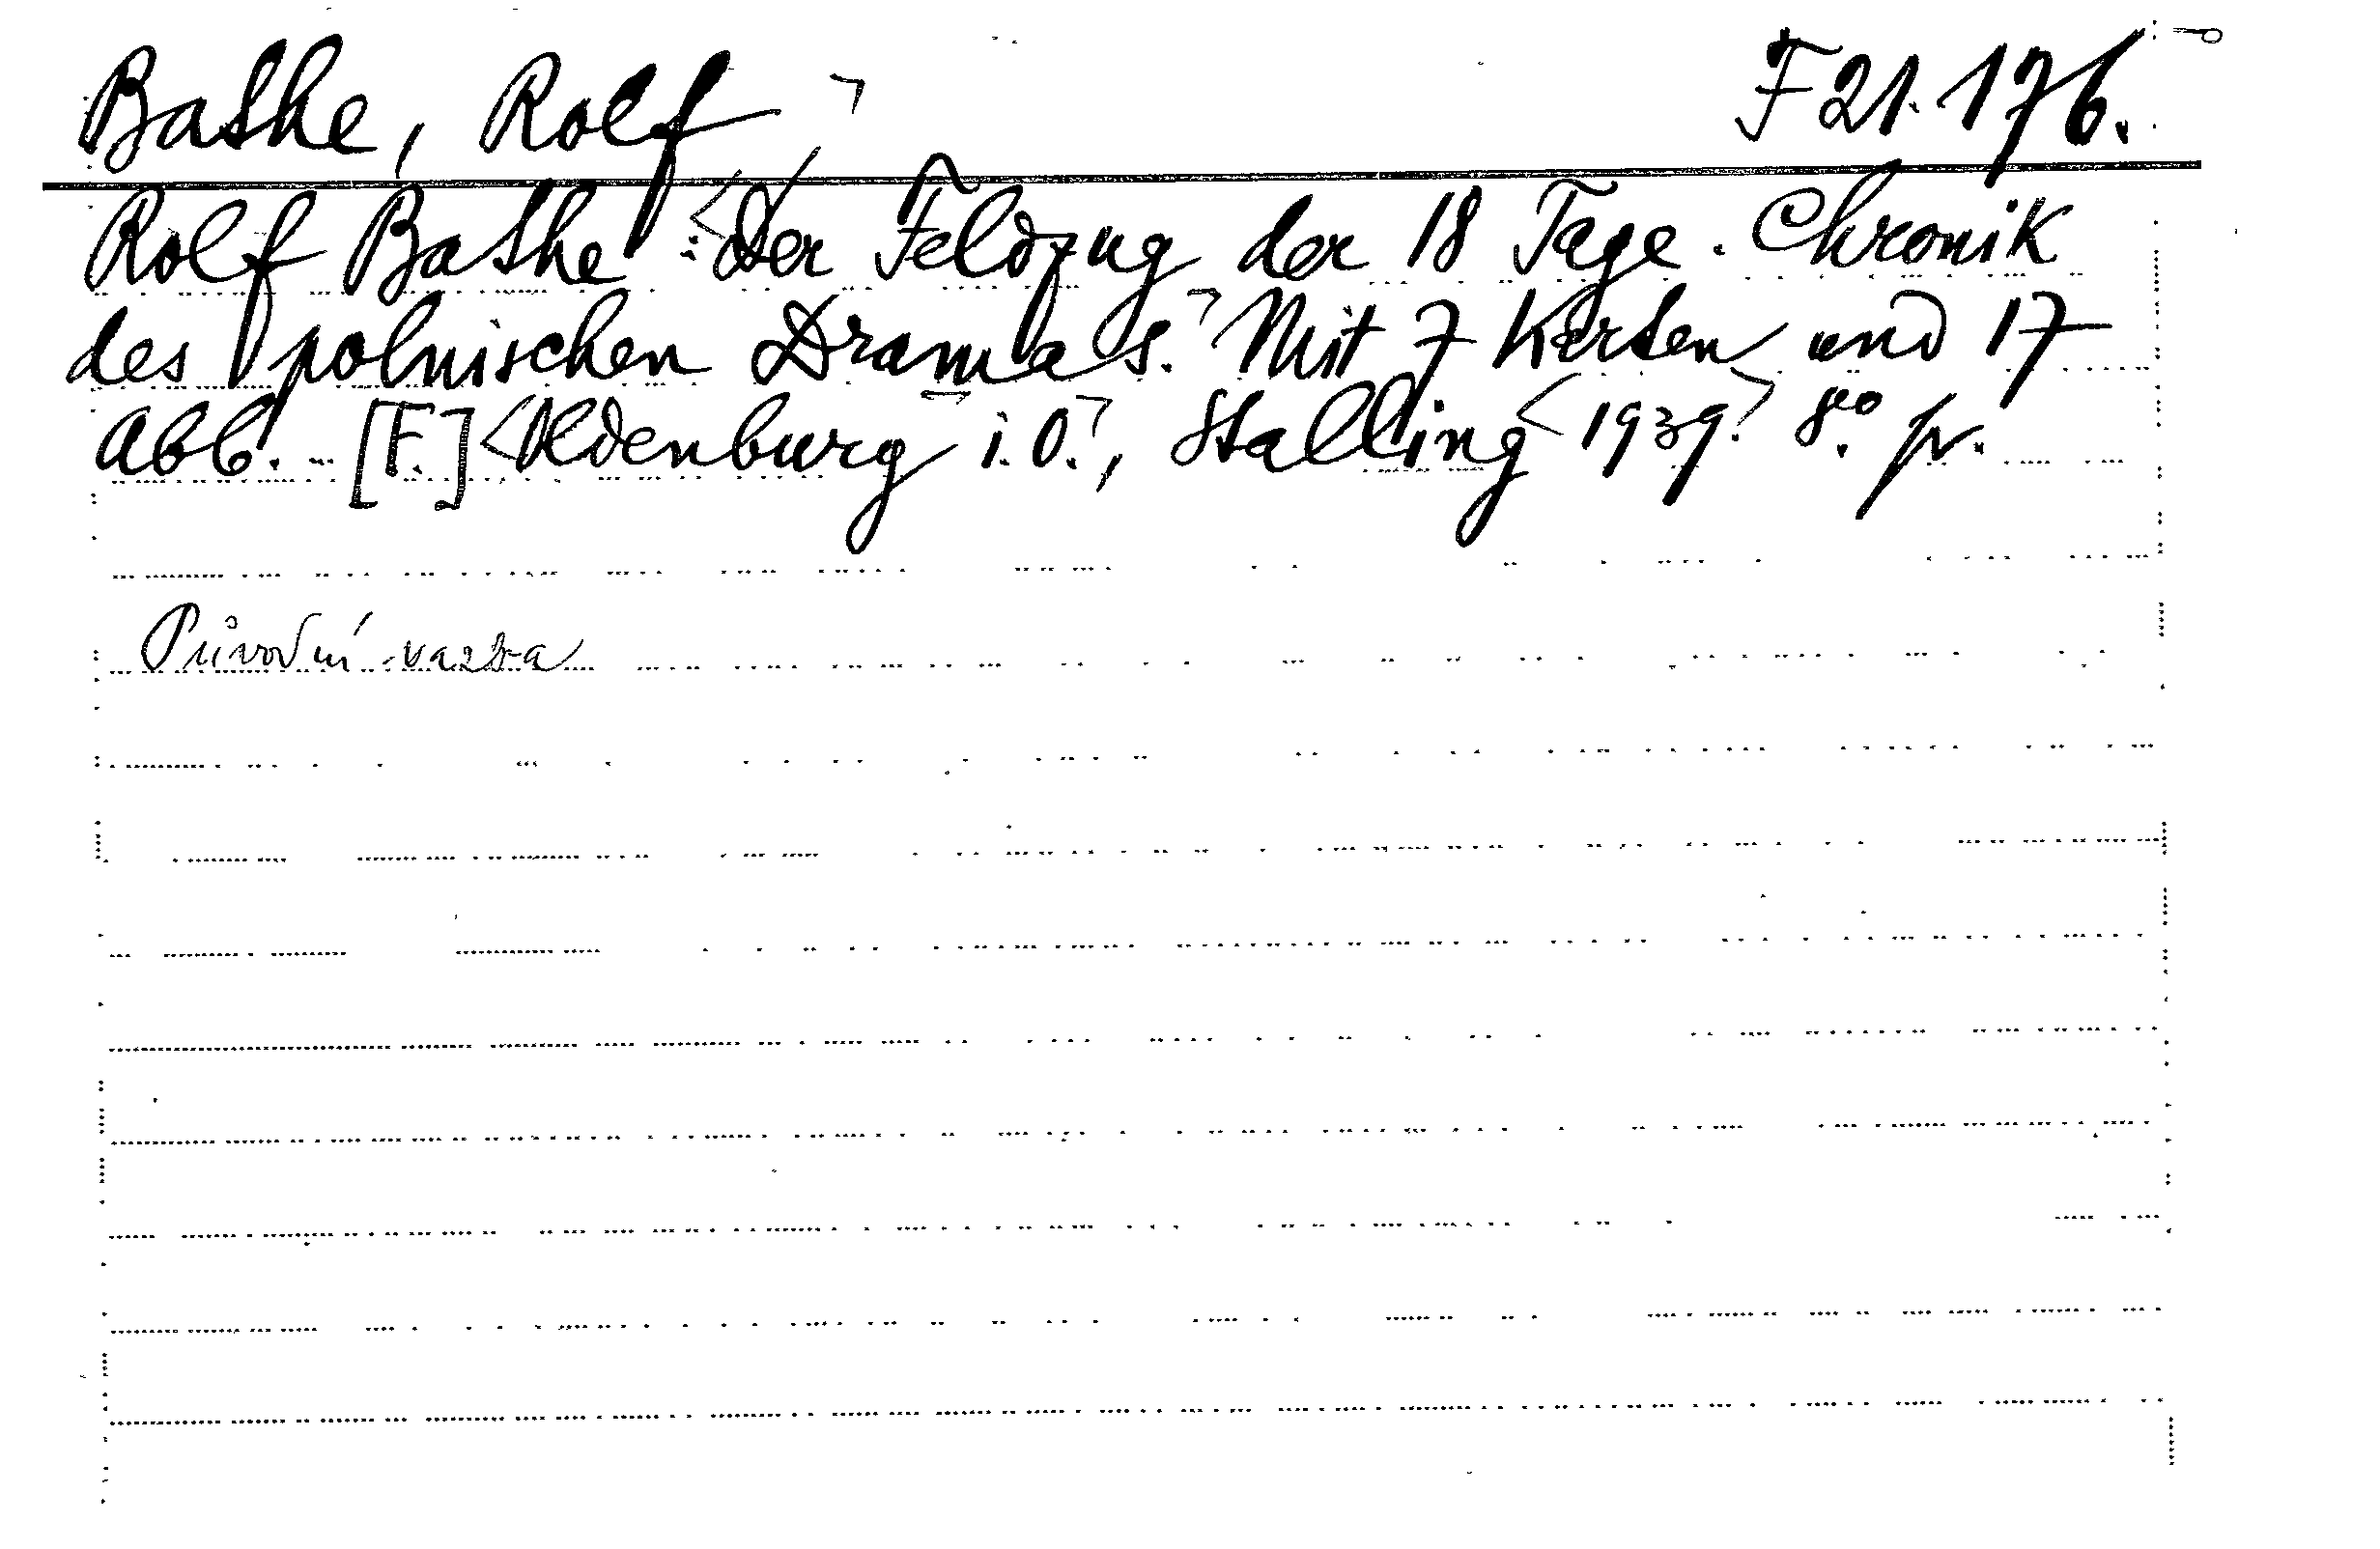 Bathe, Rolf F 21.176.
Rolf Bathe: Der Feldzug der 18 Tage. Chronik
des polnischen Dramas. Mit 7 Karten und 17
Abb. - [F.] Oldenburg i. O., Stalling 1939. 8º. pv.
Původní vazba